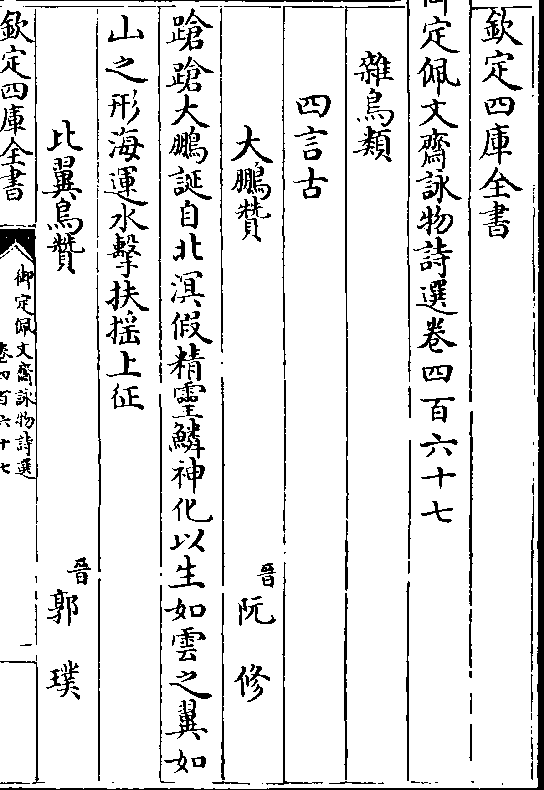 欽定四庫全書
御定佩文齋詠物詩選卷四百六十七
雜鳥類
四言古
大鵬贊 晉 阮 修
蹌蹌大鵬誕自北溟假精靈鱗神化以生如雲之翼如
山之形海運水擊扶摇上征
比翼鳥贊 晉 郭 璞
欽定四庫全書
御定佩文齋詠物詩選
卷四百六十七
一